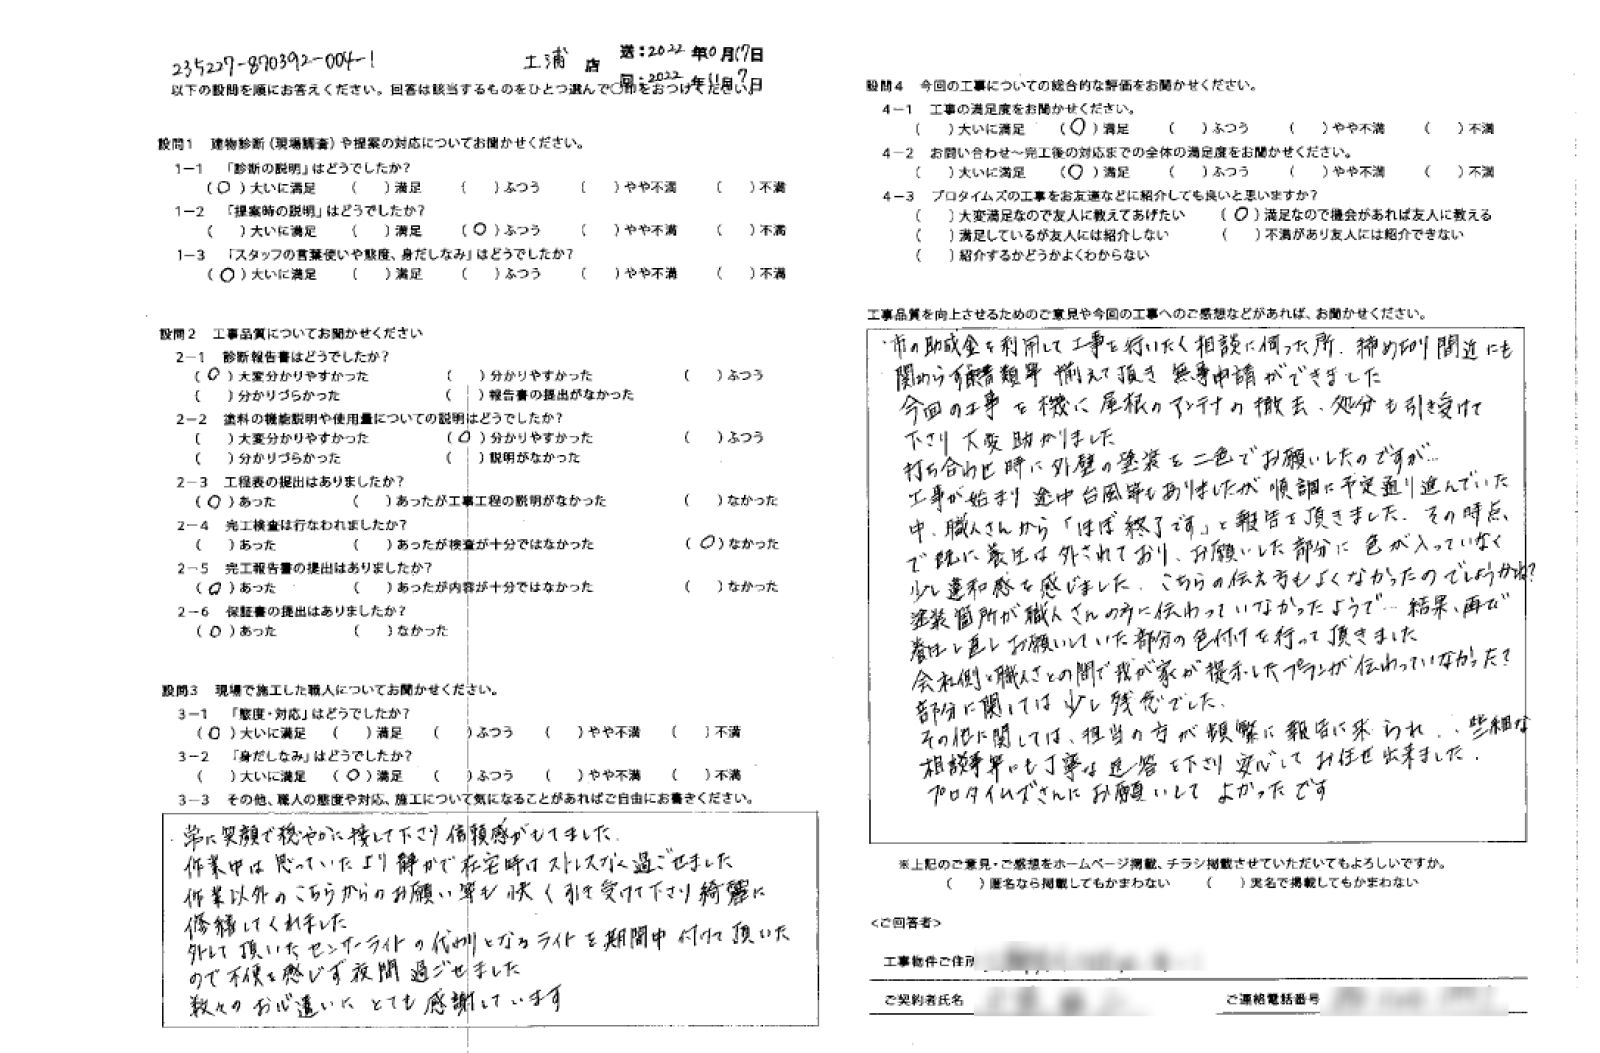 235227-870392-004-1
土浦 店
送:2022 年10月17日
回:2022 年11月7日
以下の設問を順にお答えください。回答は該当するものをひとつ選んで〇印をおつけください。
設問1 建物診断(現場調査)や提案の対応についてお聞かせください。
1－1 「診断の説明」はどうでしたか?
(○)大いに満足 ( )満足 ( )ふつう ( )やや不満 ( )不満
1－2 「提案時の説明」はどうでしたか?
( )大いに満足 ( )満足 (○)ふつう ( )やや不満 ( )不満
1－3 「スタッフの言葉使いや態度、身だしなみ」はどうでしたか?
(○)大いに満足 ( )満足 ( )ふつう ( )やや不満 ( )不満
設問2 工事品質についてお聞かせください
2－1 診断報告書はどうでしたか?
(○)大変分かりやすかった ( )分かりやすかった ( )ふつう
( )分かりづらかった ( )報告書の提出がなかった
2－2 塗料の機能説明や使用量についての説明はどうでしたか?
( )大変分かりやすかった (○)分かりやすかった ( )ふつう
( )分かりづらかった ( )説明がなかった
2－3 工程表の提出はありましたか?
(○)あった ( )あったが工事工程の説明がなかった ( )なかった
2－4 完工検査は行なわれましたか?
( )あった ( )あったが検査が十分ではなかった (○)なかった
2－5 完工報告書の提出はありましたか?
(○)あった ( )あったが内容が十分ではなかった ( )なかった
2－6 保証書の提出はありましたか?
(○)あった ( )なかった
設問3 現場で施工した職人についてお聞かせください。
3－1 「態度・対応」はどうでしたか?
(○)大いに満足 ( )満足 ( )ふつう ( )やや不満 ( )不満
3－2 「身だしなみ」はどうでしたか?
( )大いに満足 (○)満足 ( )ふつう ( )やや不満 ( )不満
3－3 その他、職人の態度や対応、施工について気になることがあればご自由にお書きください。
・常に笑顔で穏やかに接して下さり信頼感がもてました.
作業中は思っていたより静かで在宅時はストレスなく過ごせました
作業以外のこちらからのお願い等も快く引き受けて下さり綺麗に
修繕してくれました
外して頂いたセンサーライトの代わりとなるライトを期間中付けて頂いた
ので不便を感じず夜間過ごせました
数々のお心遣いにとても感謝しています
設問4 今回の工事についての総合的な評価をお聞かせください。
4－1 工事の満足度をお聞かせください。
( )大いに満足 (○)満足 ( )ふつう ( )やや不満 ( )不満
4－2 お問い合わせ～完工後の対応までの全体の満足度をお聞かせください。
( )大いに満足 (○)満足 ( )ふつう ( )やや不満 ( )不満
4－3 プロタイムズの工事をお友達などに紹介しても良いと思いますか?
( )大変満足なので友人に教えてあげたい (○)満足なので機会があれば友人に教える
( )満足しているが友人には紹介しない ( )不満があり友人には紹介できない
( )紹介するかどうかよくわからない
工事品質を向上させるためのご意見や今回の工事へのご感想などがあれば、お聞かせください。
・市の助成金を利用して工事を行いたく相談に伺った所、締め切り間近にも
関わらず書類等揃えて頂き無事申請ができました
今回の工事を機に屋根のアンテナの撤去、処分も引き受けて
下さり大変助かりました
打ち合わせ時に外壁の塗装を二色でお願いしたのですが…
工事が始まり途中台風等もありましたが順調に予定通り進んでいた
中、職人さんから「ほぼ終了です」と報告を頂きました. その時点、
で既に養生は外されており、お願いした部分に色が入っていなく
少し違和感を感じました. こちらの伝え方もよくなかったのでしょうかね?
塗装箇所が職人さんの方に伝わっていなかったようで… 結果、再び
養生し直しお願いしていた部分の色付けを行って頂きました
会社側と職人さとの間で我が家が提示したプランが伝わっていなかった?
部分に関しては少し残念でした.
その他に関しては、担当の方が頻繁に報告に来られ、. 些細な
相談事等にも丁寧な返答を下さり安心してお任せ出来ました.
プロタイムズさんにお願いしてよかったです
※上記のご意見・ご感想をホームページ掲載、チラシ掲載させていただいてもよろしいですか。
( )匿名なら掲載してもかまわない ( )実名で掲載してもかまわない
<ご回答者>
工事物件ご住所
ご契約者氏名 ご連絡電話番号